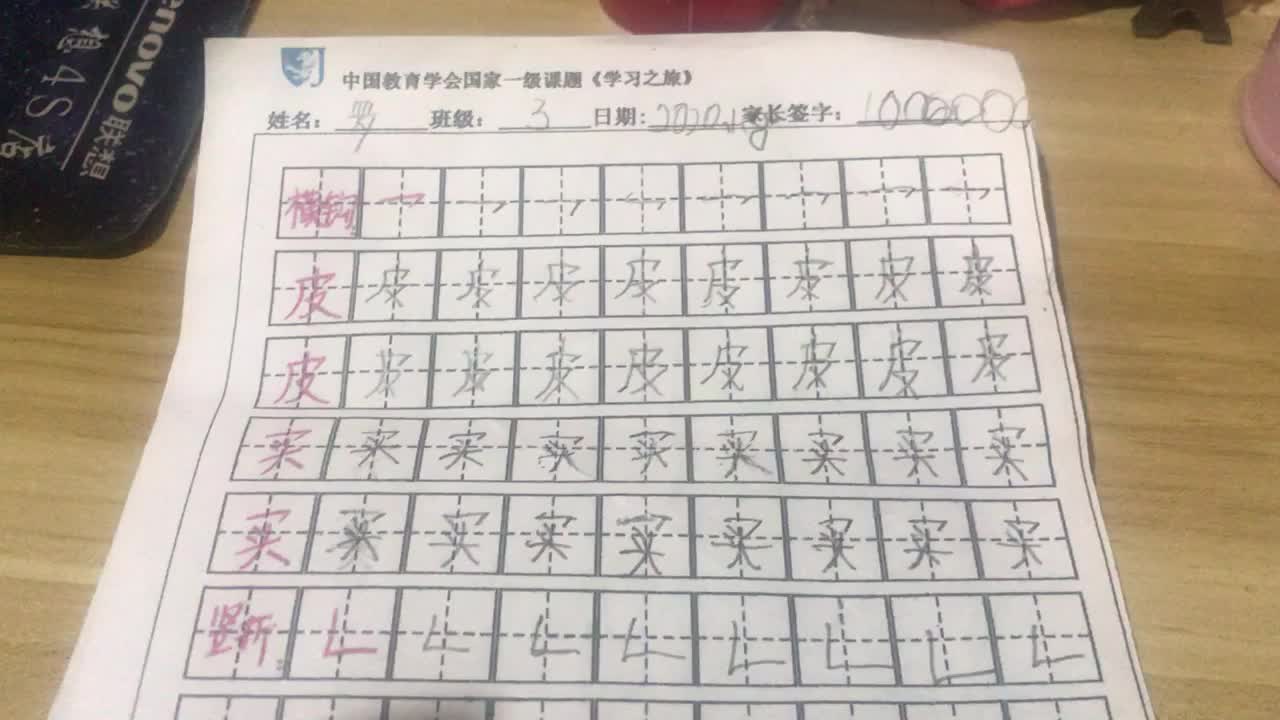 中国教育学会国家一级课题《学习之旅》
姓名： 罗 班级： 3 日期： 家长签字：
横钩
皮 皮 皮 皮 皮 皮 皮 皮 皮
皮 皮 皮 皮 皮 皮 皮 皮 皮
买 买 买 买 买 买 买 买 买
买 买 买 买 买 买 买 买 买
竖折
lenovo联想